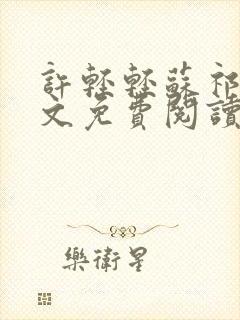 許輕輕蘇祁
文免費閱讀
樂衛星